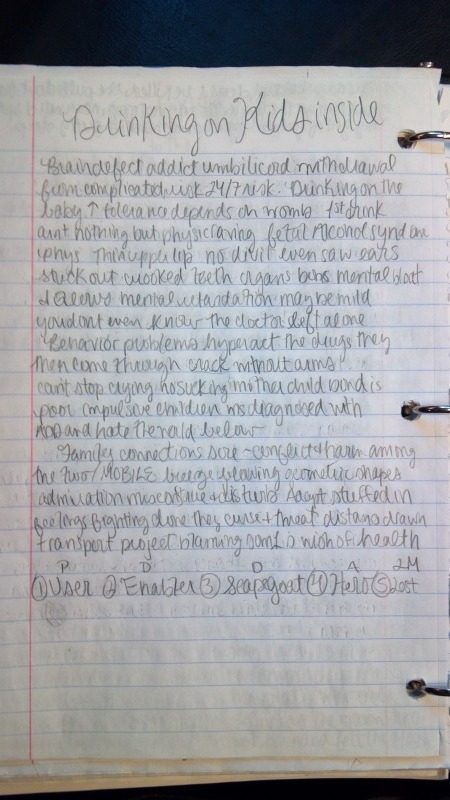 Drinking on Kids inside
Brain defect addict umbilicord withdrawal
from complicated risk 24/7 risk. Drinking on the
baby ↑ tolerance depends on womb 1st drink
aint nothing but physicraving fetal Alcohol syndrome
phys Thin upper lip no divit even saw ears
stuck out crooked teeth organs bones mental
mental retardation maybe mild
you dont even know the doctor left alone
Behavior problems hyperact the drugs they
then come through crack without arms
cant stop crying no sucking mother child bond is
poor impulsive children misdiagnosed with
ADD and hate the below
Family connections conflict + harm among
the two/MOBILE breeze blowing geometric shapes
admiration + disturb Adapt stuffed in
feelings fighting done they curse + threat distance drawn
transport project blaming of health
P D D A 2M
① User ② Enabler ③ Scapegoat ④ Hero ⑤ Lost